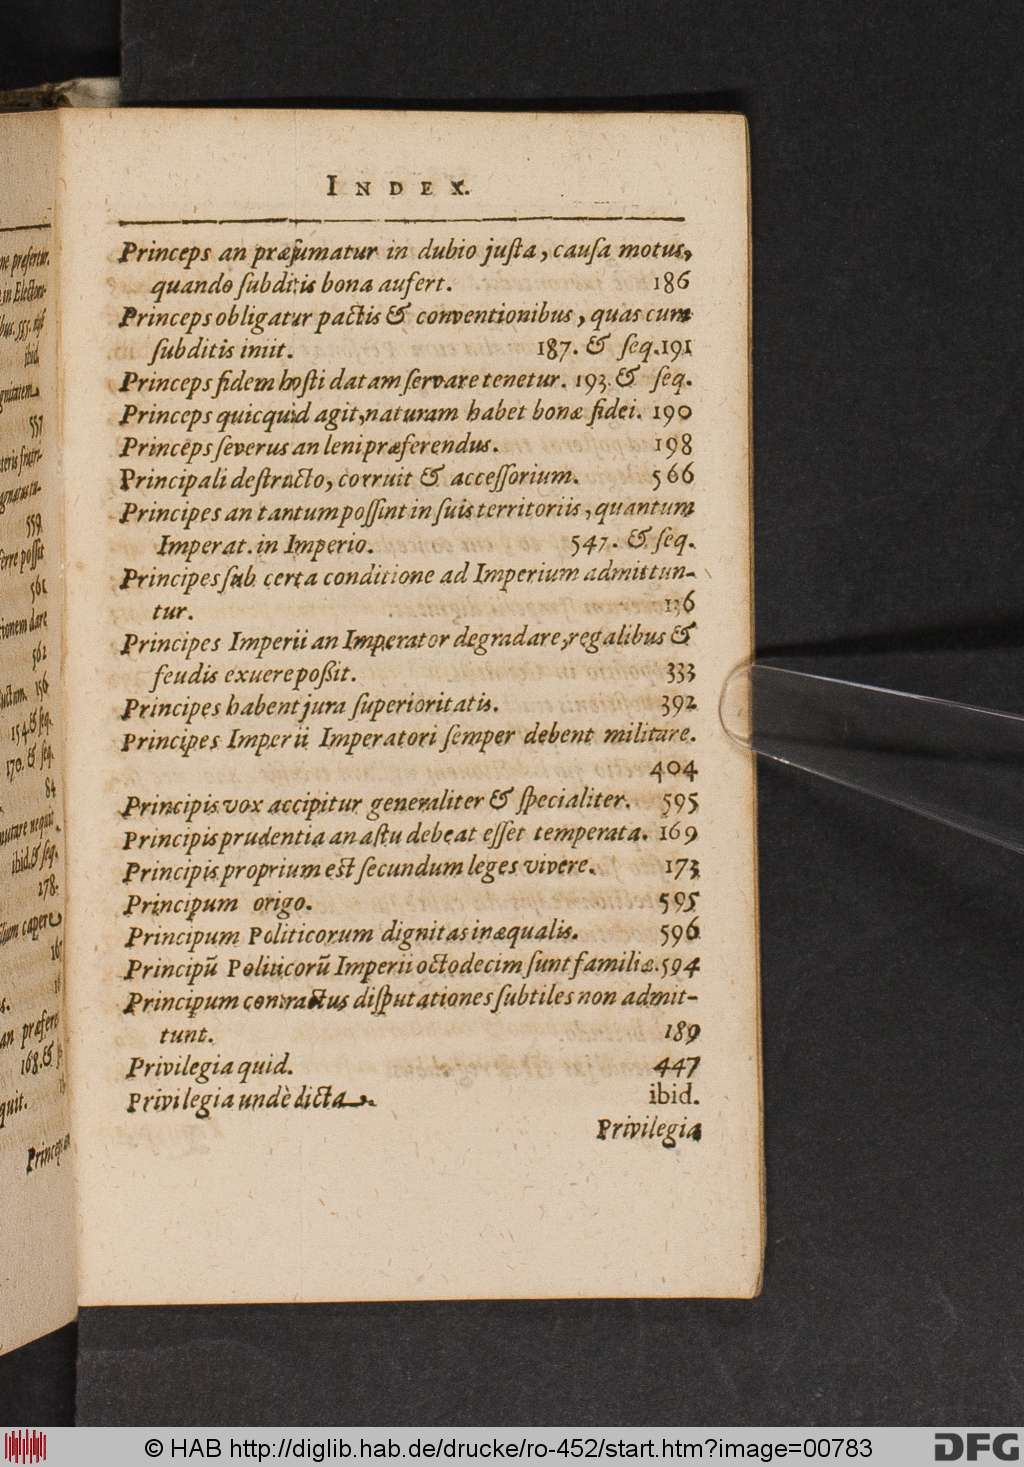 ne præfertur.
in Electori-
bus. 555. nisi
ibid.
gnitatem
557
559
ferre possit
561
ionem dare
562
156
154. & seq.
170. & seq.
84
mutare nequit.
ibid. & seq.
178.
capere
an præfere
168. &
quit.
Princeps an
INDEX.
Princeps an præsumatur in dubio justa, causa motus,
quando subditis bona aufert. 186
Princeps obligatur pactis & conventionibus, quas cum
subditis iniit. 187. & seq. 191
Princeps fidem hosti datam servare tenetur. 193. & seq.
Princeps quicquid agit, naturam habet bonæ fidei. 190
Princeps severus an leni præferendus. 198
Principali destructo, corruit & accessorium. 566
Principes an tantum possint in suis territoriis, quantum
Imperat. in Imperio. 547. & seq.
Principes sub certa conditione ad Imperium admittun-
tur. 136
Principes Imperii an Imperator degradare, regalibus &
feudis exuere poßit. 333
Principes habent jura superioritatis. 392
Principes Imperii Imperatori semper debent militare.
404
Principis vox accipitur generaliter & specialiter. 595
Principis prudentia an astu debeat esset temperata. 169
Principis proprium est secundum leges vivere. 173
Principum origo. 595
Principum Politicorum dignitas inæqualis. 596
Principū Politicorū Imperii octodecim sunt familiæ. 594
Principum contractus disputationes subtiles non admit-
tunt. 189
Privilegia quid. 447
Privilegia undè dicta. ibid.
Privilegia
© HAB http://diglib.hab.de/drucke/ro-452/start.htm?image=00783
DFG